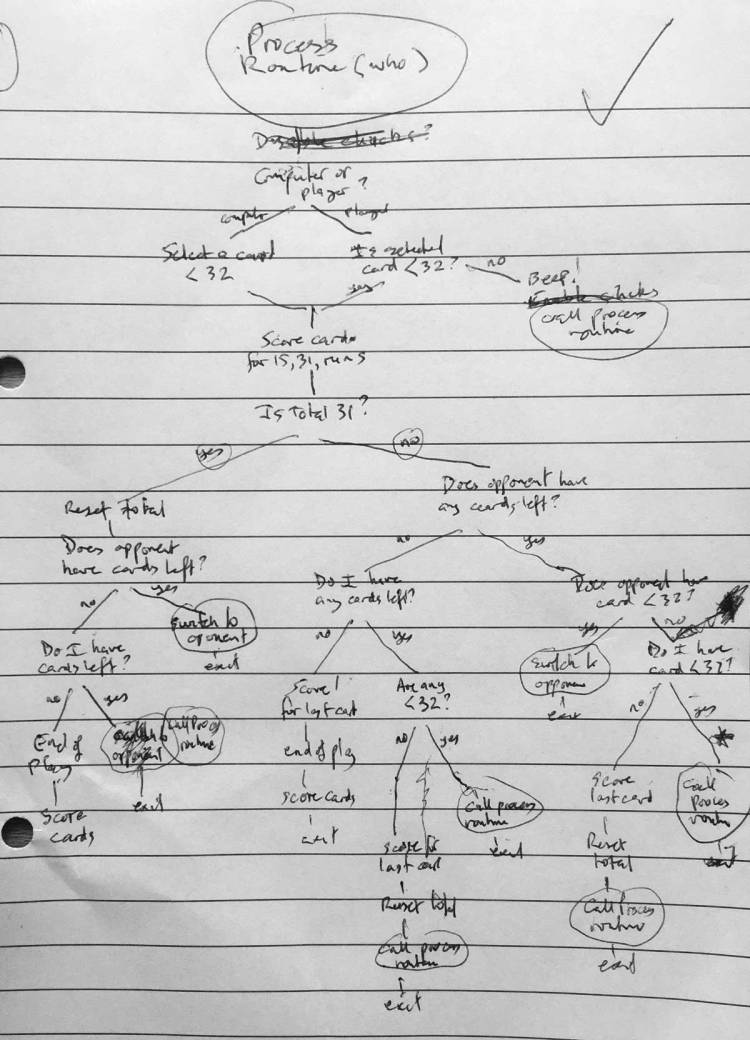 Process
Routine (who)
Computer or
player?
computer
player
Select a card
< 32
Is selected
card < 32?
no
yes
Beep!
Call process
routine
Score cards
for 15, 31, runs
Is total 31?
yes
no
Reset total
Does opponent have
any cards left?
Does opponent
have cards left?
no
yes
no
yes
Do I have
any cards left?
Does opponent have
card < 32?
Switch to
oponent
exit
no
yes
Do I have
cards left?
no
yes
no
yes
Switch to
opponen
exit
Do I have
card < 32?
no
yes
Score 1
for last card
Are any
< 32?
no
yes
End of
play
opponent
Call Process
routine
exit
Score
cards
end of play
score cards
exit
no
yes
Call process
routine
exit
score
last card
Call
Process
routine
exit
score for
last card
Reset total
Call process
routine
exit
Reset
total
Call Process
routine
exit